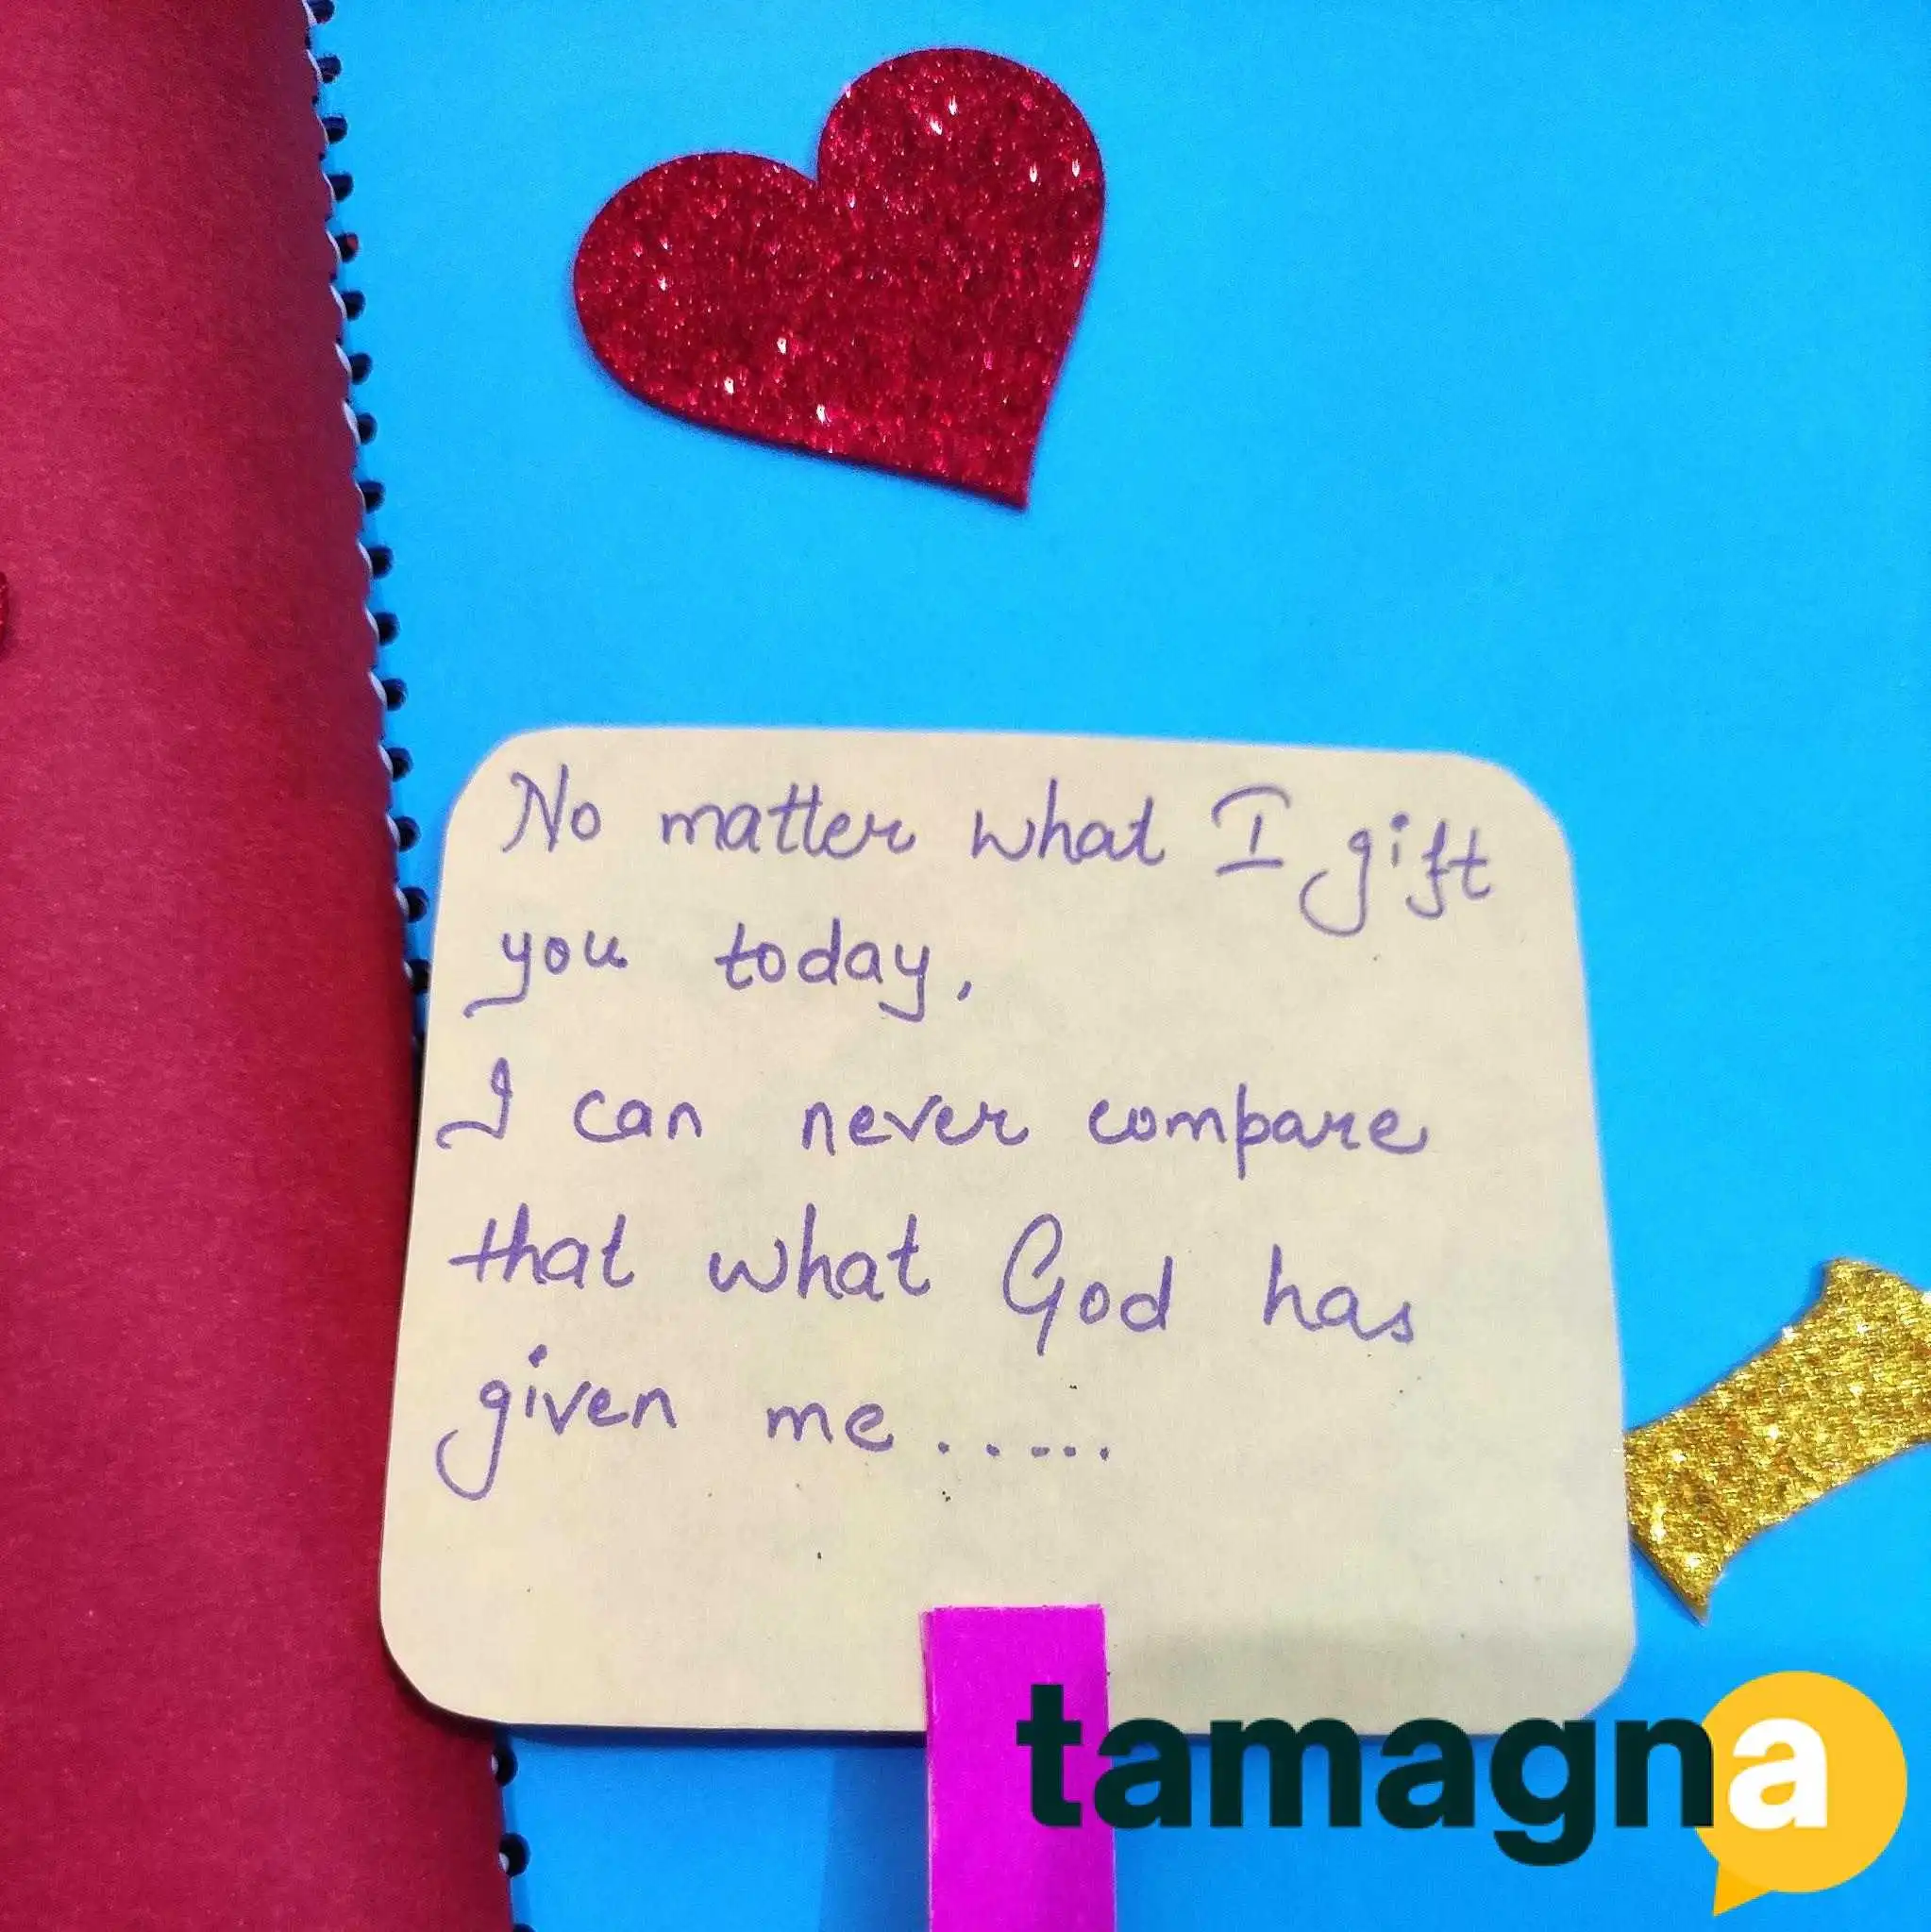 No matter what I gift
you today,
I can never compare
that what God has
given me.....
tamagna